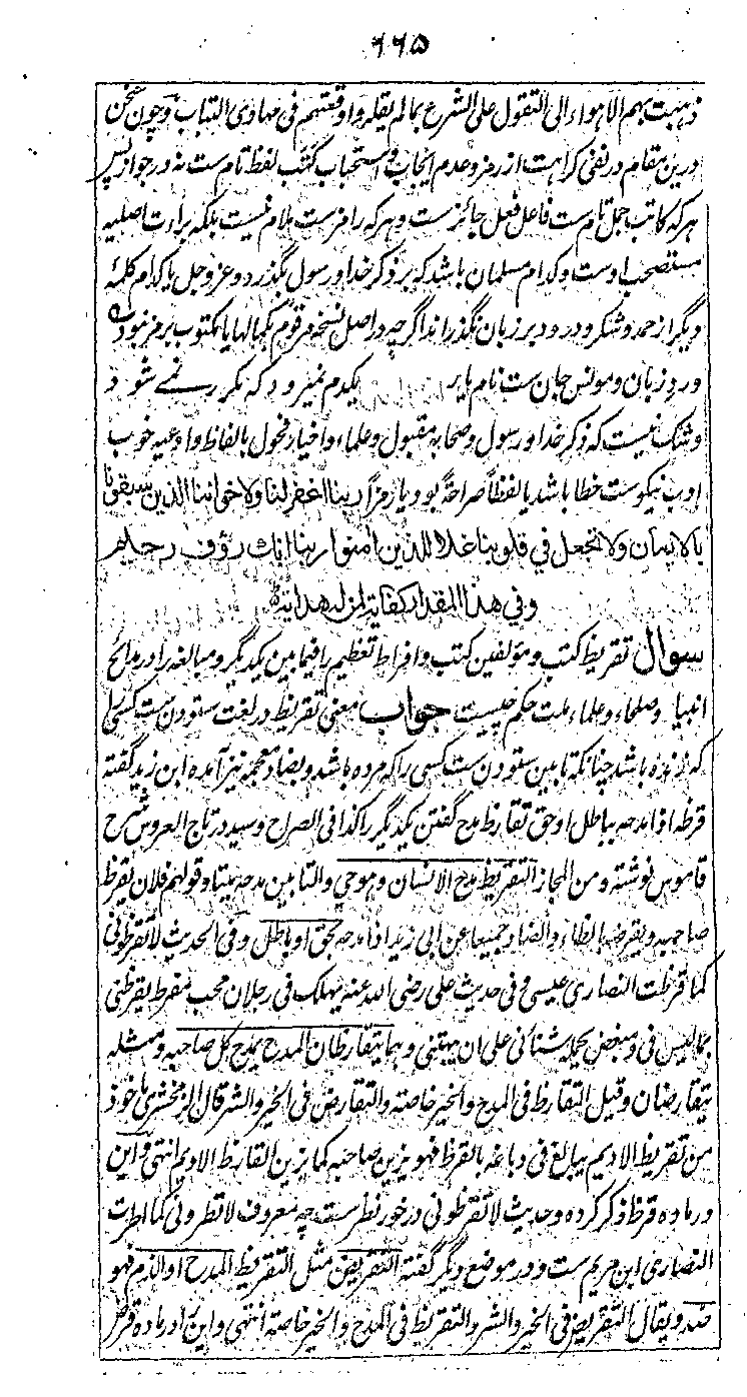 ۶۶۵
ذهبت بهم الاهواء الی التقول علی الشرع بمالم یقله واوقعتهم فی مهاوی التباب وچون سخن
درین مقام در نفی کراهت از رمز و عدم ایجاب و استحباب کتب لفظ تام ست نه در جواز پس
هر که کاتب جمل تام ست فاعل فعل جائز ست و هر که رامز ست ملام نیست بلکه براءت اصلیه
مستصحب اوست و کدام مسلمان باشد که بر ذکر خدا و رسول بگذرد و عز و جل یا کدام کلمهٔ
دیگر از حمد و شکر و درود بر زبان نگذراند اگرچه در اصل نسخه مرقوم بکمالها یا مکتوب برمز نبود
ورد زبان و مونس جان ست نام یار یکدم نمیرود که مکرر نمے شود
و شک نیست که ذکر خدا و رسول و صحابه مقبول و علماء و اخیار فحول بالفاظ و ادعیه خوب
ادب نیکوست خطا باشد یا لفظاً صراحةً بود یا رمزاً ربنا اغفر لنا ولاخواننا الذین سبقونا
بالایمان ولا تجعل فی قلوبنا غلا للذین امنوا ربنا انك رؤف رحیم
وفی هذا المقدار کفایة لمن له هدایة
سوال تقریظ کتب و مؤلفین کتب و افراط تعظیم را فیما بین یکدیگر و مبالغه را در مدائح
انبیا و صلحاء و علماء ملت حکم چیست جواب معنی تقریظ در لغت ستودن ست کسی را
که زنده باشد چنانکه تابین ستودن ست کسی را که مرده باشد و بضاد معجمه نیز آمده ابن زید گفته
قرظه اذا مدحه بباطل او حق تقارظ مدح گفتن یکدیگر را کذا فی الصراح و سید در تاج العروس شرح
قاموس نوشته ومن المجاز التقریظ مدح الانسان وهو حی والتابین مدحه میتا وقولهم فلان یقرظ
صاحبه ویقرضه بالظاء والضاد جمیعا عن ابی زید اذا مدحه بحق او باطل وفی الحدیث لا تقرظونی
کما قرظت النصاری عیسی وفی حدیث علی رضی الله عنه یهلک فی رجلان محب مفرط یقرظنی
بما لیس فی ومبغض یحمله شنآنی علی ان یبهتنی وهما یتقارظان المدح یمدح کل صاحبه ومثله
یتقارضان وقیل التقارظ فی المدح والخیر خاصة والتقارض فی الخیر والشر قال الزمخشری ماخوذ
من تقریظ الادیم یبالغ فی دباغه بالقرظ فهو یزین صاحبه کما یزین القارظ الادیم انتهی و این
در ماده قرظ ذکر کرده و حدیث لا تقرظونی در خور نظر ست چه معروف لا تطرونی کما اطرت
النصاری ابن مریم ست و در موضع دیگر گفته التقریض مثل التقریظ المدح او الذم فهو
ضد ویقال التقریض فی الخیر والشر والتقریظ فی المدح والخیر خاصة انتهی و این را در ماده قرض